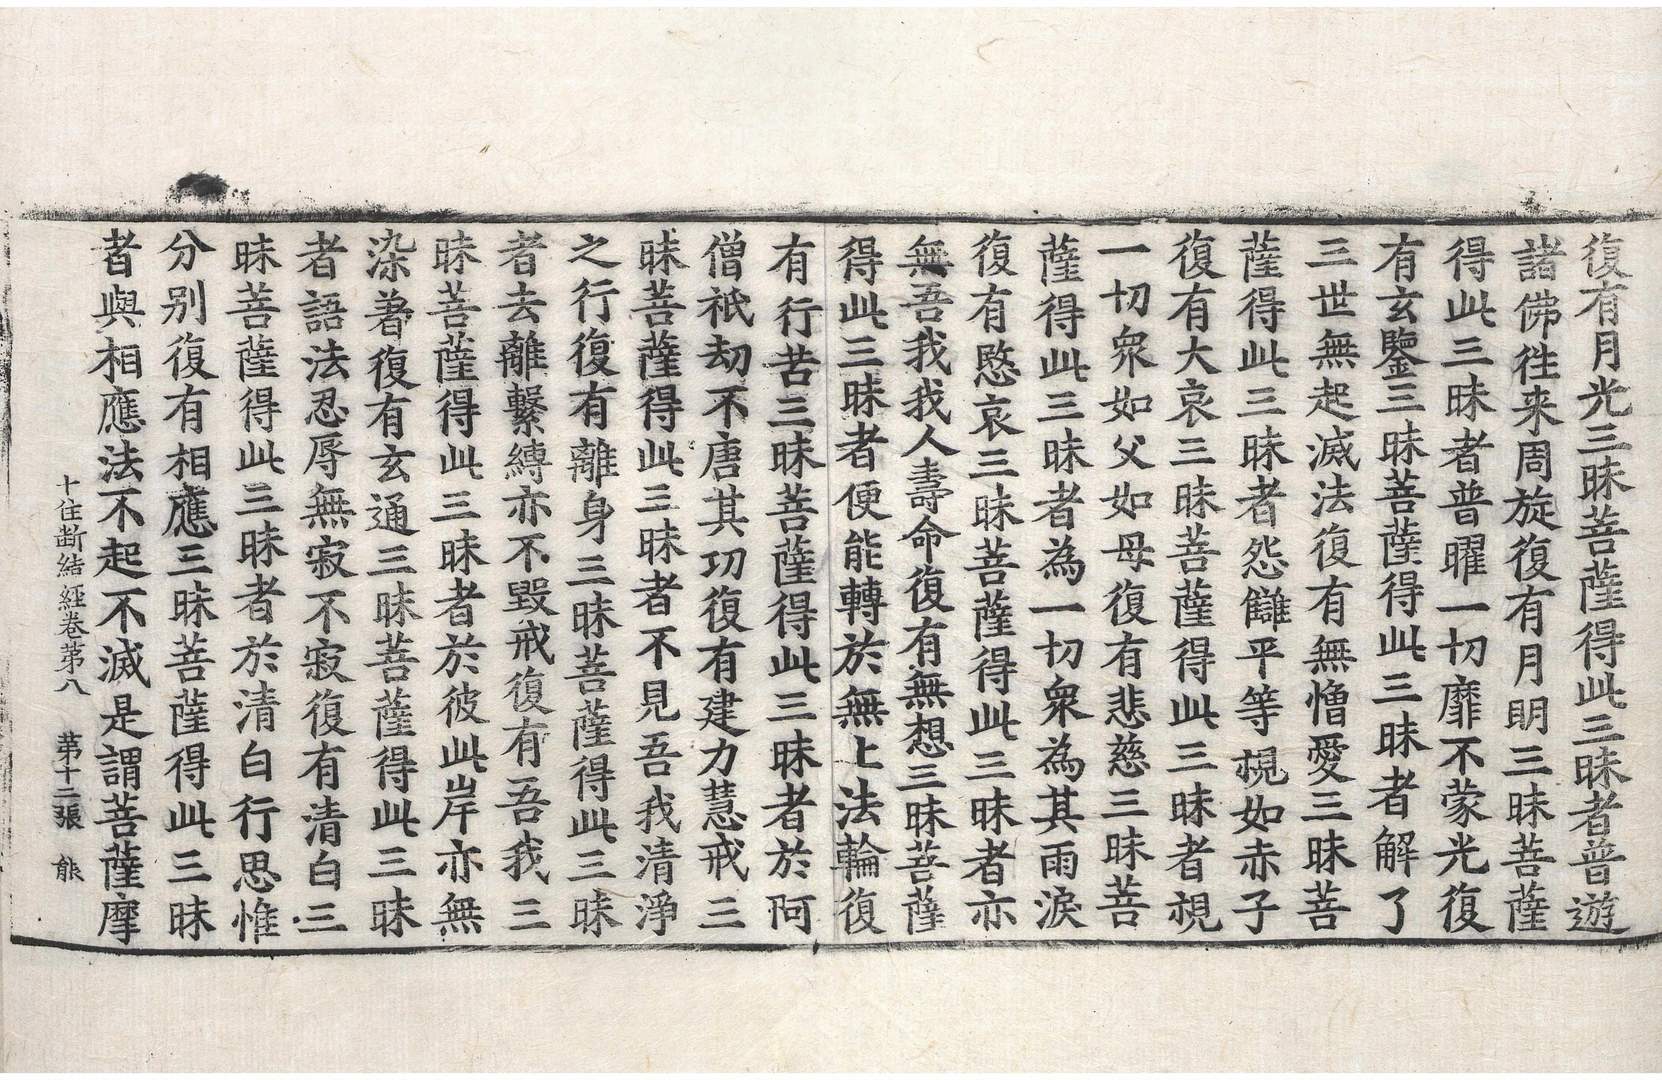 復有月光三昧菩薩得此三昧者普遊
諸佛往来周旋復有月明三昧菩薩
得此三昧者普曜一切靡不蒙光復
有玄鑒三昧菩薩得此三昧者解了
三世無起滅法復有無憎愛三昧菩
薩得此三昧者怨讎平等視如赤子
復有大哀三昧菩薩得此三昧者視
一切衆如父如母復有悲慈三昧菩
薩得此三昧者為一切衆為其雨淚
復有愍哀三昧菩薩得此三昧者亦
無吾我我人壽命復有無想三昧菩薩
得此三昧者便能轉於無上法輪復
有行苦三昧菩薩得此三昧者於阿
僧祇劫不唐其功復有建力慧戒三
昧菩薩得此三昧者不見吾我清淨
之行復有離身三昧菩薩得此三昧
者去離繫縛亦不毀戒復有吾我三
昧菩薩得此三昧者於彼此岸亦無
染著復有玄通三昧菩薩得此三昧
者語法忍辱無寂不寂復有清白三
昧菩薩得此三昧者於清白行思惟
分别復有相應三昧菩薩得此三昧
者與相應法不起不滅是謂菩薩摩
十住斷結經卷第八 第十二張 能